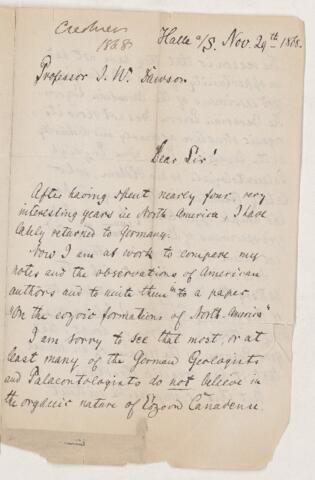 Credner
1868
Halle a/S. Nov. 29th 1868.
Professor J. W. Dawson
Dear Sir!
After having spent nearly four very
interesting years in North-America, I have
lately returned to Germany.
Now I am at work to compare my
notes and the observations of American
authors and to unite them to a paper
"On the eozoic formations of North America"
I am sorry to see that most, or at
least many of the German Geologists
and Palaeontologists do not believe in
the organic nature of Eozoon Canadense.